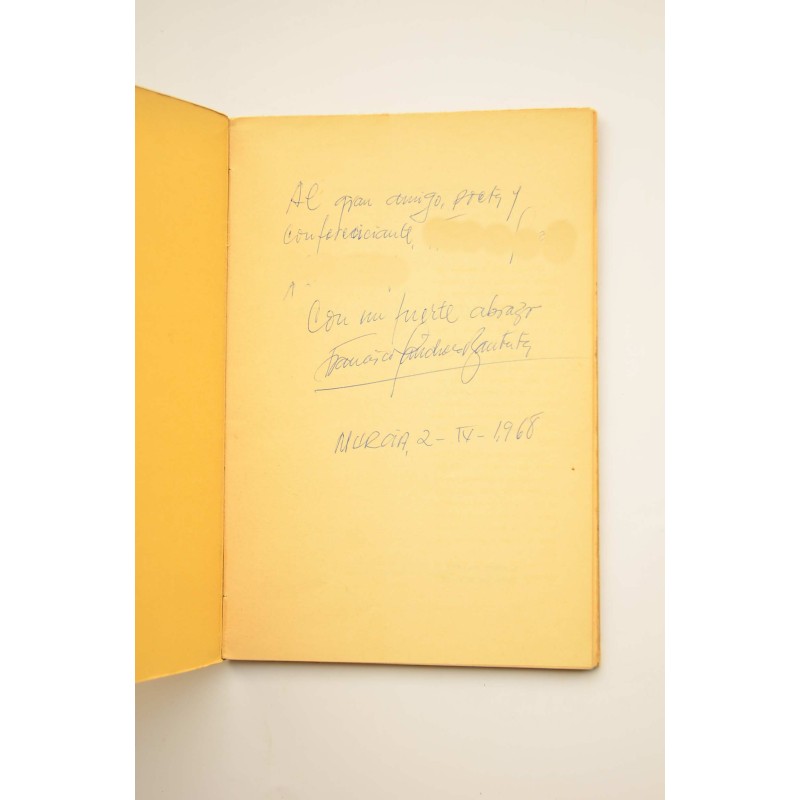 Al gran amigo, poeta y
conferenciante,
Con mi fuerte abrazo
Francisco Sánchez Bautista
MURCIA, 2-IV-1968